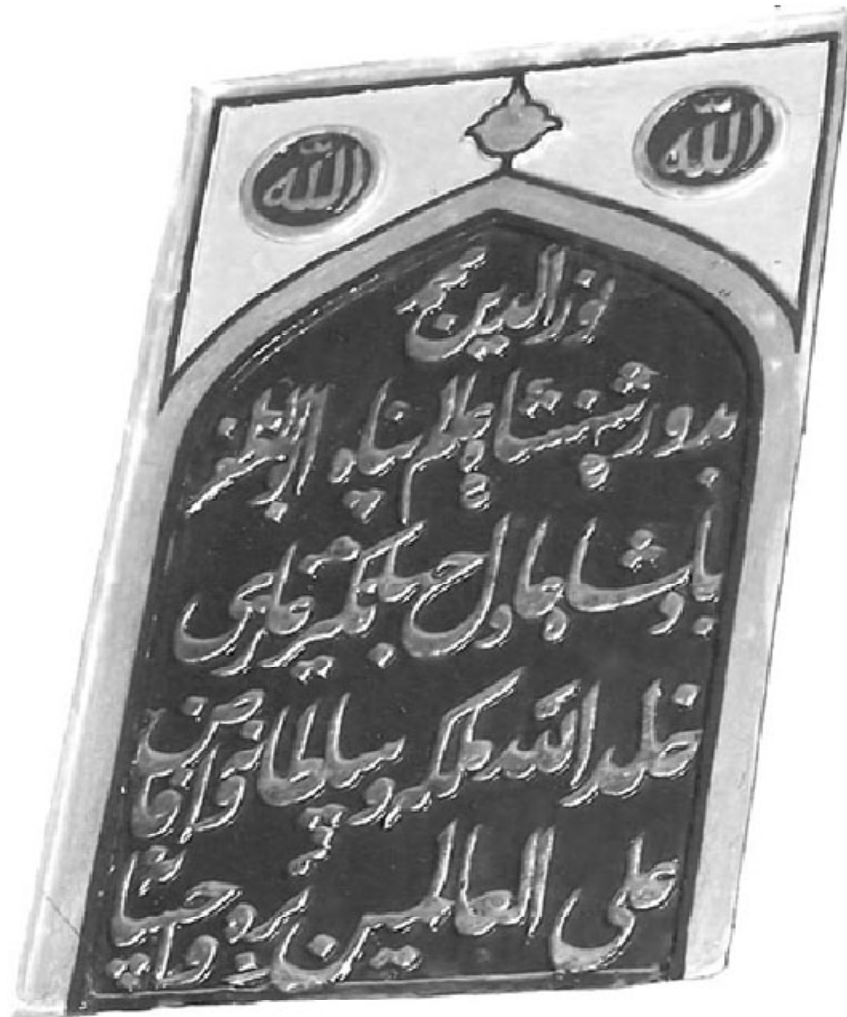 الله الله
نور الدین محمد
بدور شهنشاه عالم پناه ابو المظفر
بادشاه عادل جهانگیر غازی
خلد الله ملکه وسلطانه وافاض
علی العالمین بره واحسانه